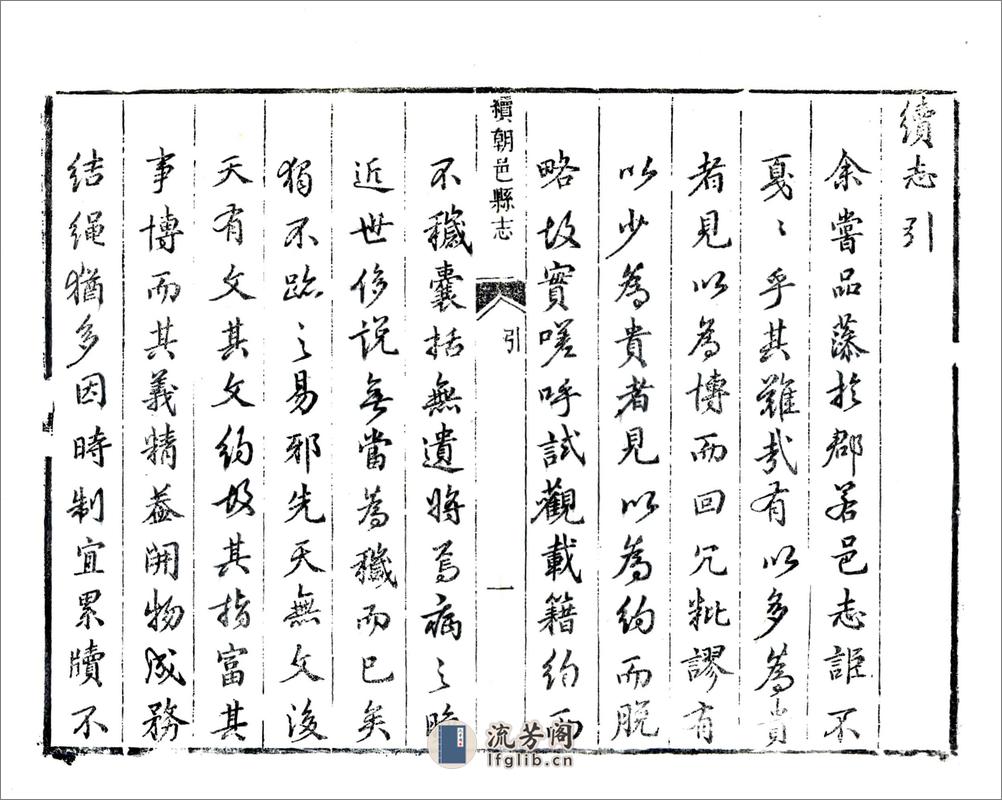 續志引
余嘗品藻於郡若邑志詎不
戛〻乎其難哉有以多為貴
者見以為博而回冗粃謬有
以少為貴者見以為約而脫
略故實嗟呼試觀載籍約而
續朝邑縣志 引 一
不穢囊括無遺將焉病之
近世侈說無當為穢而已矣
獨不跡之易邪先天無文後
天有文其文約故其指富其
事博而其義精蓋開物成務
結繩猶多因時制宜累牘不
流芳阁
lfglib.cn